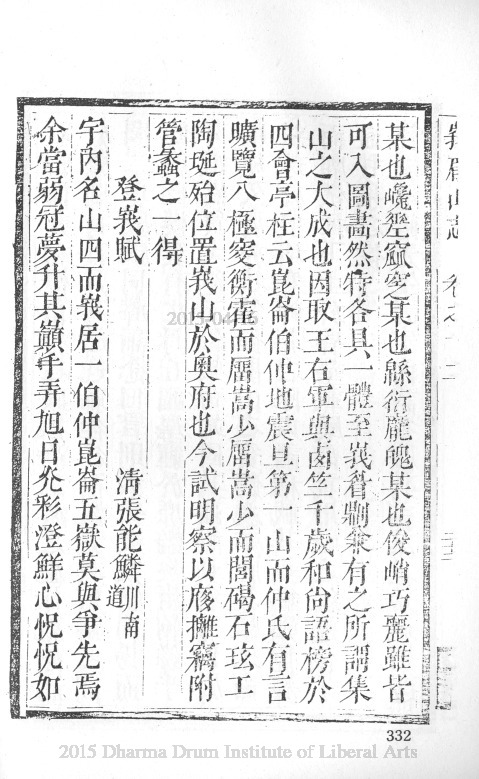 某也巉𡾊窳窔某也緜衍龐醜某也俊峭巧麗雖皆
可入圖畵然特各具一體至峩眷則兼有之所謂集
山之大成也因取王右軍與西竺千歲和尚語榜於
四會亭柱云崑崙伯仲地震旦第一山而仲氏有言
曠覽八極窔衡霍而𢋨嵩少𢋨嵩少而閣碣石玹工
陶埏殆位置峩山於奥府也今試明察以廋攡竊附
管蠡之一得
登峩賦 清張能鱗川南道
宇内名山四而峩居一伯仲崑崙五嶽莫與爭先焉
余當弱冠夢升其巔手弄旭日光彩澄鮮心怳怳如
峩眉山志 卷之
332
2015 Dharma Drum Institute of Liberal Arts